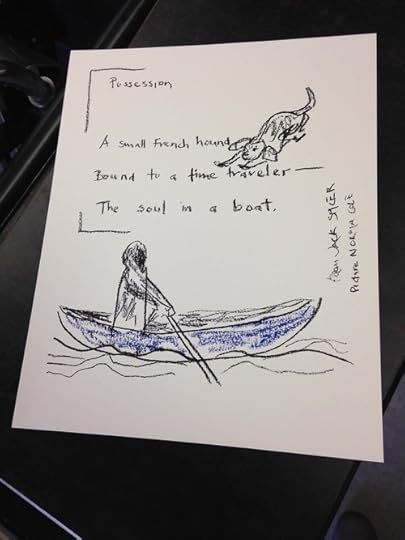 Possession
A small French hound
Bound to a time traveler—
The soul in a boat.
JACK
Picture NORMA COLE